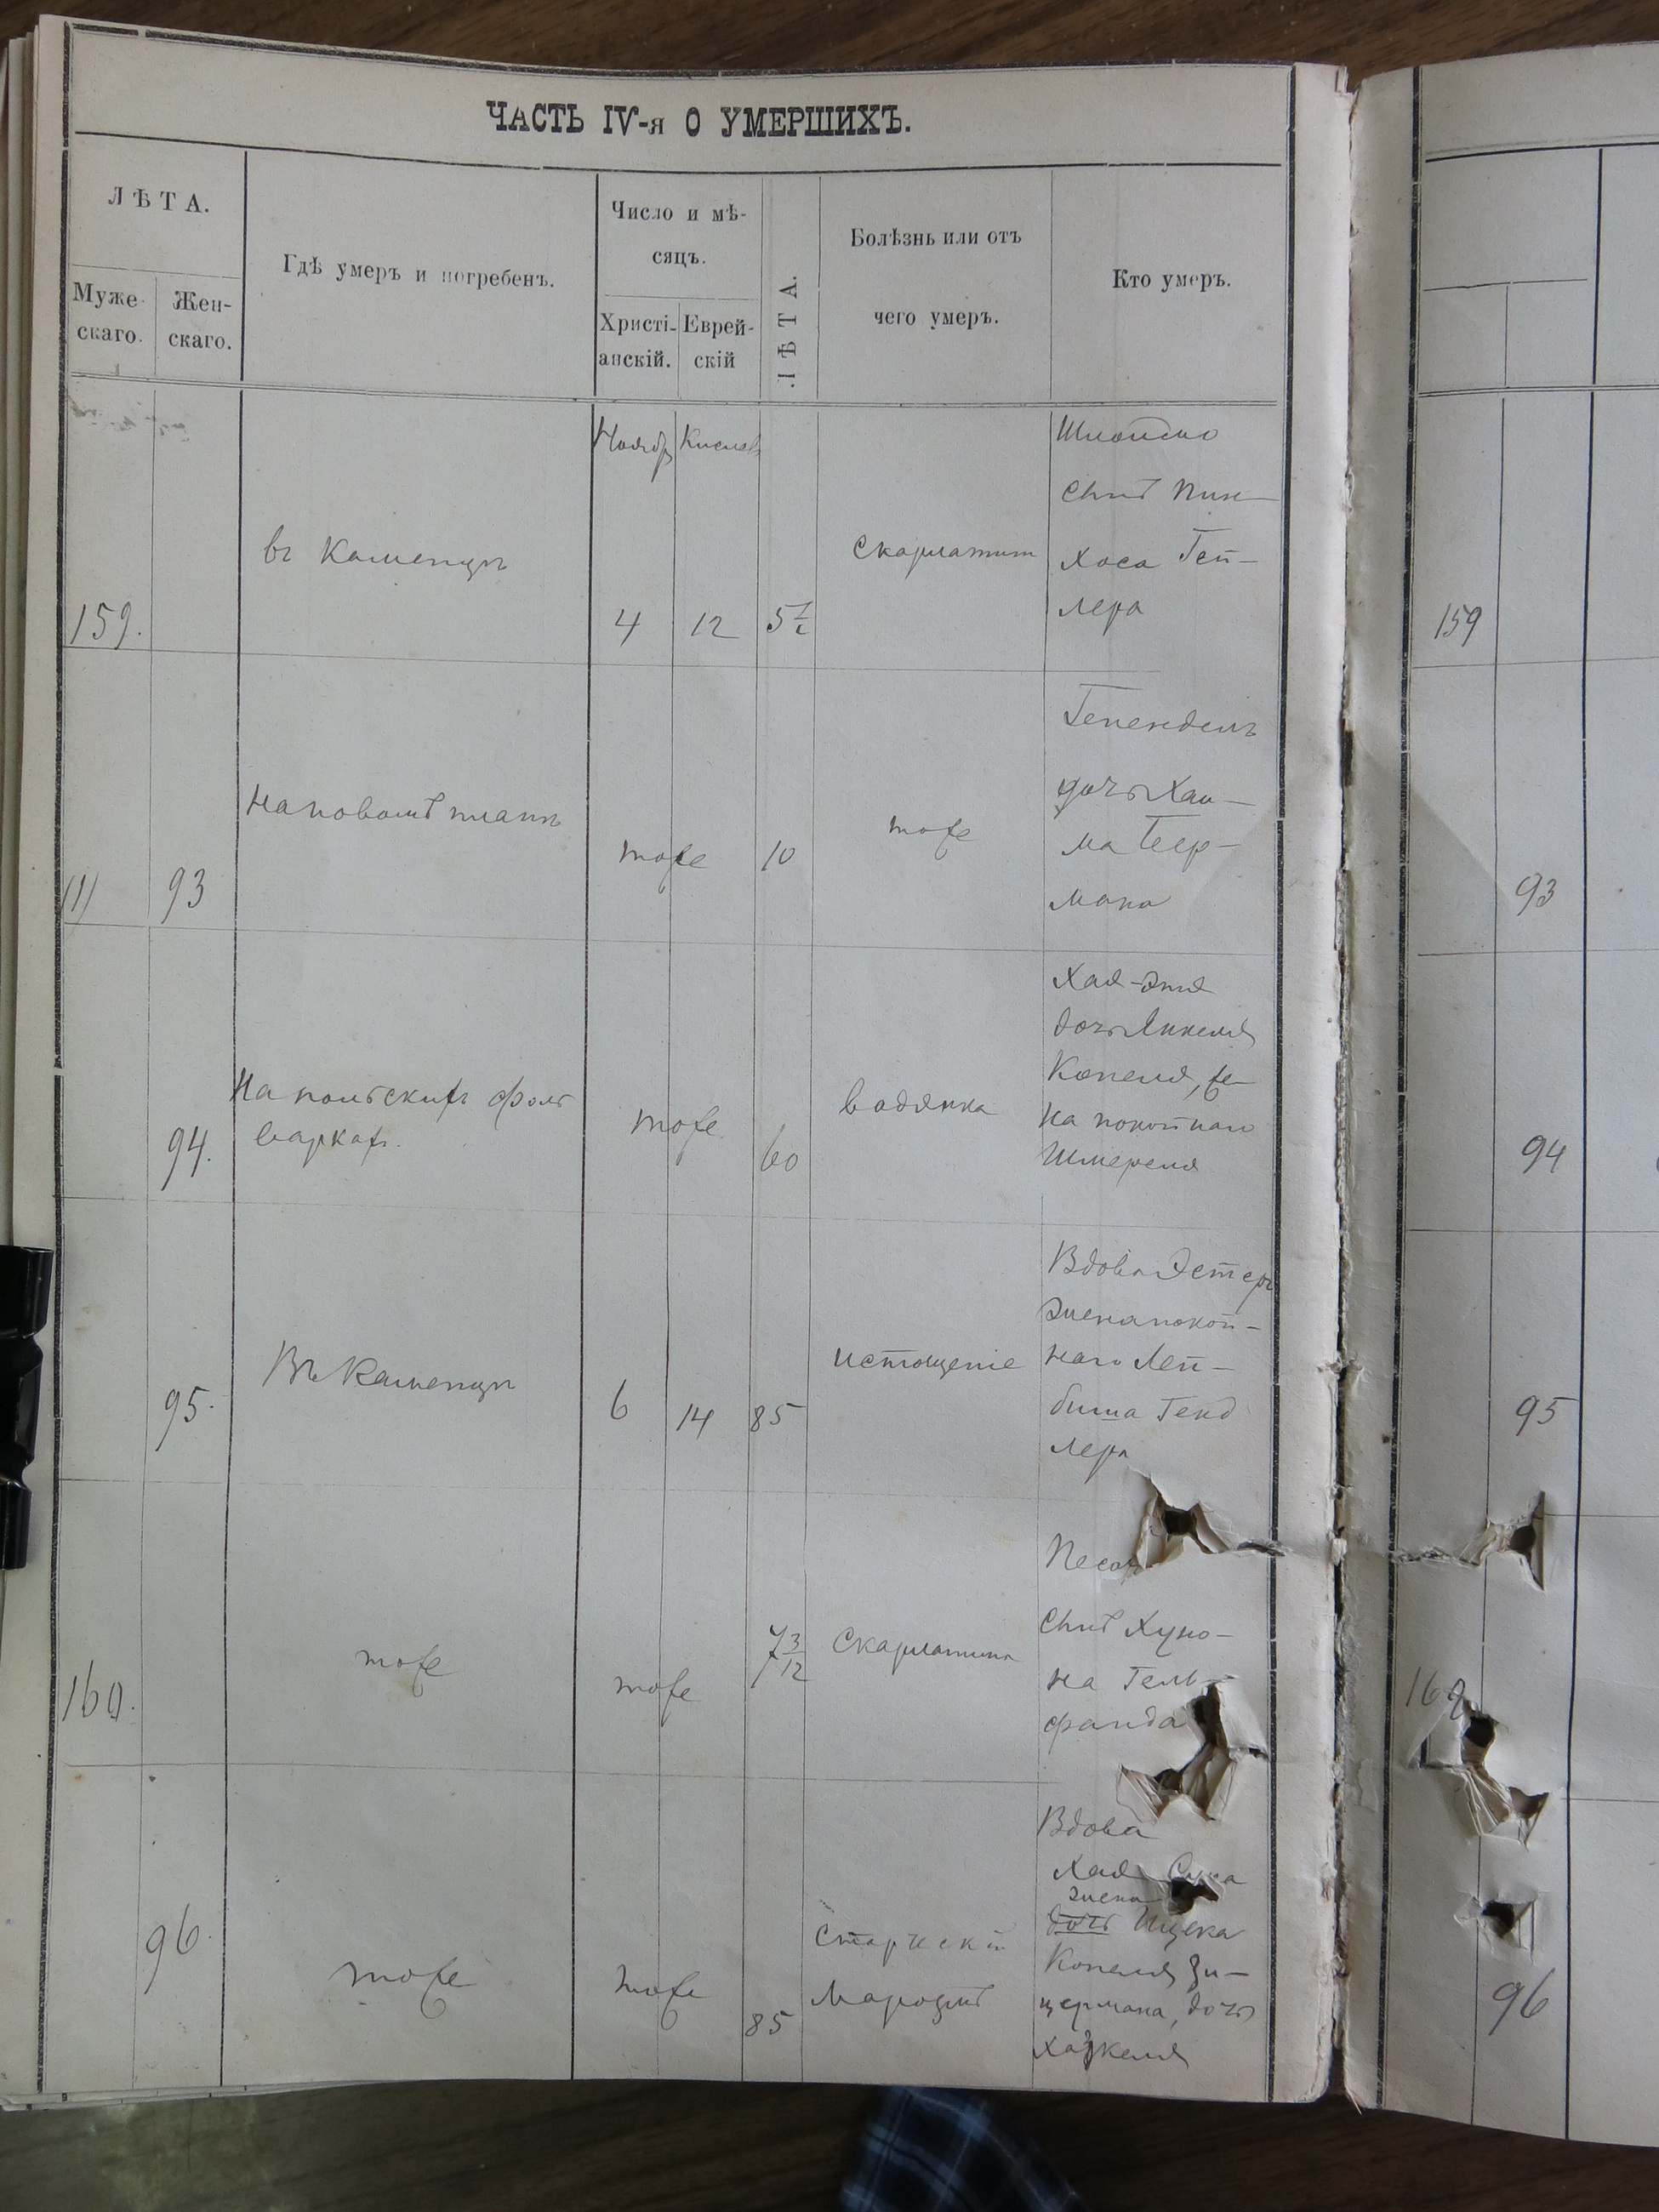 ЧАСТЬ IV-я О УМЕРШИХЪ.
ЛѢТА.
Муже-
скаго.
Жен-
скаго.
Гдѣ умеръ и погребенъ.
Число и мѣ-
сяцъ.
Христі-
анскій.
Еврей-
скій
ЛѢТА.
Болѣзнь или отъ
чего умеръ.
Кто умеръ.
Ноябр
Кислев
159.
въ Каменцѣ
4
12
5 1/2
Скарлатин
сынъ Пин-
хоса Гей-
лера
159
93
На новомъ планѣ
тоже
10
тоже
Генендель
дочь Хаи-
ма Беер-
мана
93
94.
На польскихъ фоль
варках.
тоже
60
водянка
Хая-Эня
дочь Янкеля
Копеля, же-
на покойнаго
Шмереля
94
95.
Въ Каменцѣ
6
14
85
истощеніе
Вдова Эстеръ
жена покой-
наго Лей-
биша Генд
лера
95
160.
тоже
тоже
7 3/12
Скарлатина
Песах
сынъ Хуно-
на Гель-
фанда
160
96.
тоже
тоже
85
Старческій
Маразмъ
Вдова
Хая Сура
жена
дочь Ицека
Копеля Зи-
цермана, дочь
Хазкеля
96